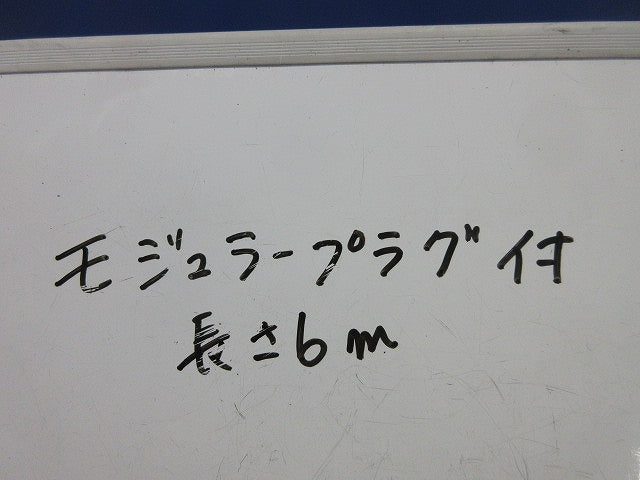 モジュラープラグ付
長さ6m